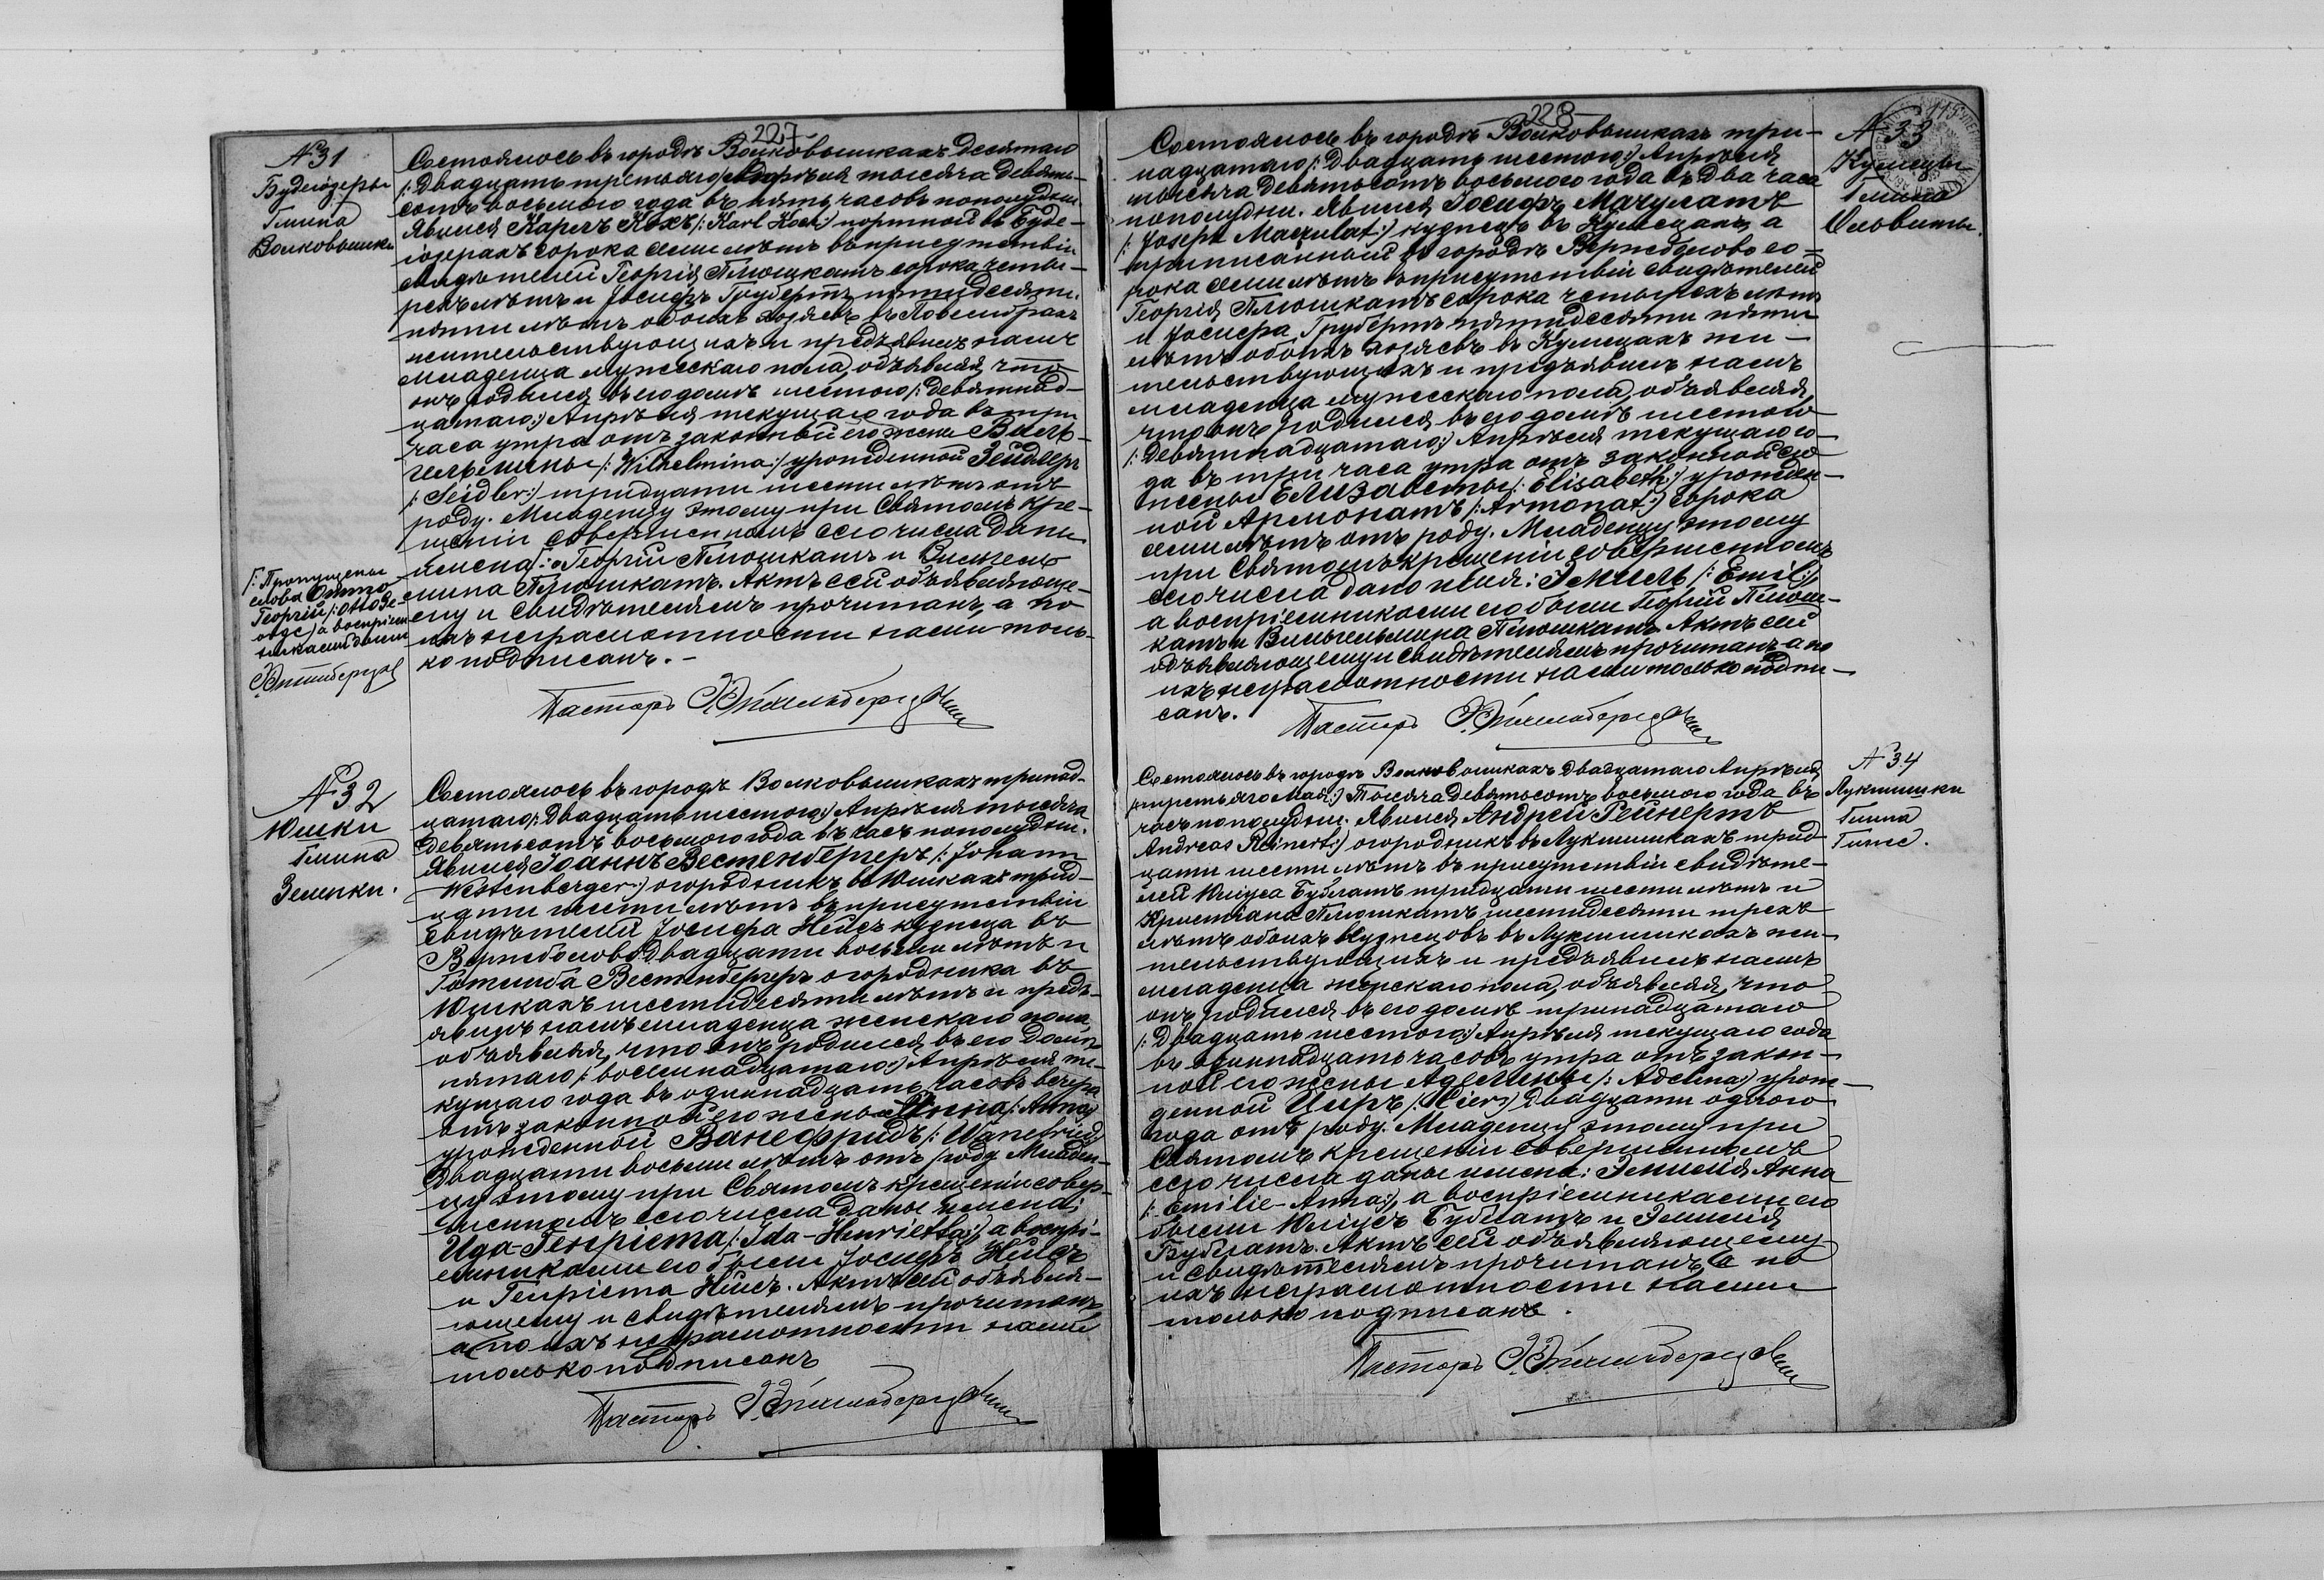 227
№31
Будезёзеры
Гмина
Волковышки
Состоялось въ городѣ Волковышкахъ десятаго
/: Двадцать третьяго:/ Апрѣля тысяча девять-
сотъ восьмого года въ пять часовъ пополудни
Явился Карлъ Кохъ /: Karl Koch:/ портной въ Буде-
іозерахъ сорока семи лѣтъ въ присутствіи
свидѣтелей Георгія Плюшкатъ сорока четы-
рехъ лѣтъ и Іосифъ Грубертъ пятидесяти
пяти лѣтъ обоихъ хозяевъ въ
жительствующихъ и предъявилъ намъ
младенца мужескаго пола, объявляя, что
онъ родился въ его домѣ шестого /: девятнад-
цатаго:/ Апрѣля текущаго года въ три
часа утра отъ законный его жены Виль-
гельмины /: Wilhelmina:/ урожденной Зейдлеръ
/: Seidler:/ тридцати шести лѣтъ отъ
роду. Младенцу этому при Святомъ кре-
щеніи совершенномъ сего числа даны
имена: Георгій Плюшкатъ и Вильгель-
мина Плюшкатъ. Актъ сей объявляюще-
му и свидѣтелямъ прочитанъ, а по
ихъ неграмотности нами толь-
ко подписанъ. -
/: Пропущены
слова Отто
Георгій /: Otto Ge-
orge:/ а воспріем-
никами были

Пасторъ
№32
Юшки
Гмина
Зеленки.
Состоялось въ городѣ Волковышкахъ тринад-
цатаго /: Двадцать шестого:/ Апрѣля тысяча
девятьсотъ восьмого года въ часъ пополудни.
Явился Іоаннъ Вестенбергеръ /: Johann
Westenberger:/ огородникъ въ Юшкахъ трид-
цати шести лѣтъ въ присутствіи
свидѣтелей Іосифа Нейсъ кузнеца въ
Вержболово двадцати восьми лѣтъ и
Готлиба Вестенбергеръ огородника въ
Юшкахъ шестидесяти лѣтъ и предъ-
явилъ намъ младенца женскаго пола
объявляя, что онъ родился въ его домѣ
пятаго /: восемнадцатаго:/ Апрѣля те-
кущаго года въ одиннадцать часовъ вечера
отъ законной его жены Анна /: Anna:/
урожденной Ванефридъ /: Wanefried:/
двадцати восьми лѣтъ отъ роду. Младен-
цу этому при Святомъ крещеніи совер-
шенномъ сего числа даны имена:
Ида-Генріета /: Ida-Henrietta:/, а воспрі-
емниками его были Іосифъ Нейсъ
и Генріета Нейсъ. Актъ сей объявля-
ющему и свидѣтелямъ прочитанъ,
а по ихъ неграмотности нами
только подписанъ
Пасторъ
228
115
№33
Кумецы
Гмина
Ольвиты.
Состоялось въ городѣ Волковышкахъ три-
надцатаго /: Двадцать шестого:/ Апрѣля
тысяча девятьсотъ восьмого года въ два часа
пополудни. Явился Іосифъ Мачулатъ
/: Joseph Maczulat:/ кузнецъ въ Кумецахъ, а
приписанный въ городѣ Вержболово со-
рока семи лѣтъ въ присутствіи свидѣтелей
Георгія Плюшкатъ сорока четырехъ лѣтъ
и Іосифа Грубертъ пятидесяти пяти
лѣтъ обоихъ хозяевъ въ Кумецахъ жи-
тельствующихъ и предъявилъ намъ
младенца мужескаго пола, объявляя,
что онъ родился въ его домѣ шестого
/: девятнадцатаго:/ Апрѣля текущаго го-
да въ три часа утра отъ законной его
жены Елизаветы /: Elisabeth:/ урожден-
ной Армонатъ /: Armonat:/ сорока
семи лѣтъ отъ роду. Младенцу этому
при Святомъ крещеніи совершенномъ
сего числа дано имя: Эмиль /: Emil:/
а воспріемниками его были Георгій Плюш-
катъ и Вильгельмина Плюшкатъ. Актъ сей
объявляющему и свидѣтелямъ прочитанъ, а по
ихъ неграмотности нами только подпи-
санъ.
Пасторъ
№34
Лукшишки
Гмина
Гиже.
Состоялось въ городѣ Волковышкахъ двадцатаго Апрѣля
/: третьяго Мая:/ Тысяча девятьсотъ восьмого года въ
часъ пополудни. Явился Андрей Рейнертъ
Andreas Reinert:/ огородникъ въ Лукшишкахъ трид-
цати шести лѣтъ въ присутствіи свидѣте-
лей Юліуса Бублатъ тридцати шести лѣтъ и
Христіана Плюшкатъ шестидесяти трехъ
лѣтъ обоихъ кузнецовъ въ Лукшишкахъ жи-
тельствующихъ и предъявилъ намъ
младенца женскаго пола, объявляя, что
онъ родился въ его домѣ тринадцатаго
/: Двадцать шестого:/ Апрѣля текущаго года
въ одиннадцать часовъ утра отъ закон-
ной его жены Аделины /: Adelina:/ урож-
денной двадцати одного
года отъ роду. Младенцу этому при
Святомъ крещеніи совершенномъ
сего числа даны имена: Эмилія Анна
/: Emilie-Anna:/, а воспріемниками его
были Юліусъ Бублатъ и Эмилія
Бублатъ. Актъ сей объявляющему
и свидѣтелямъ прочитанъ, а по
ихъ неграмотности нами
только подписанъ.
Пасторъ